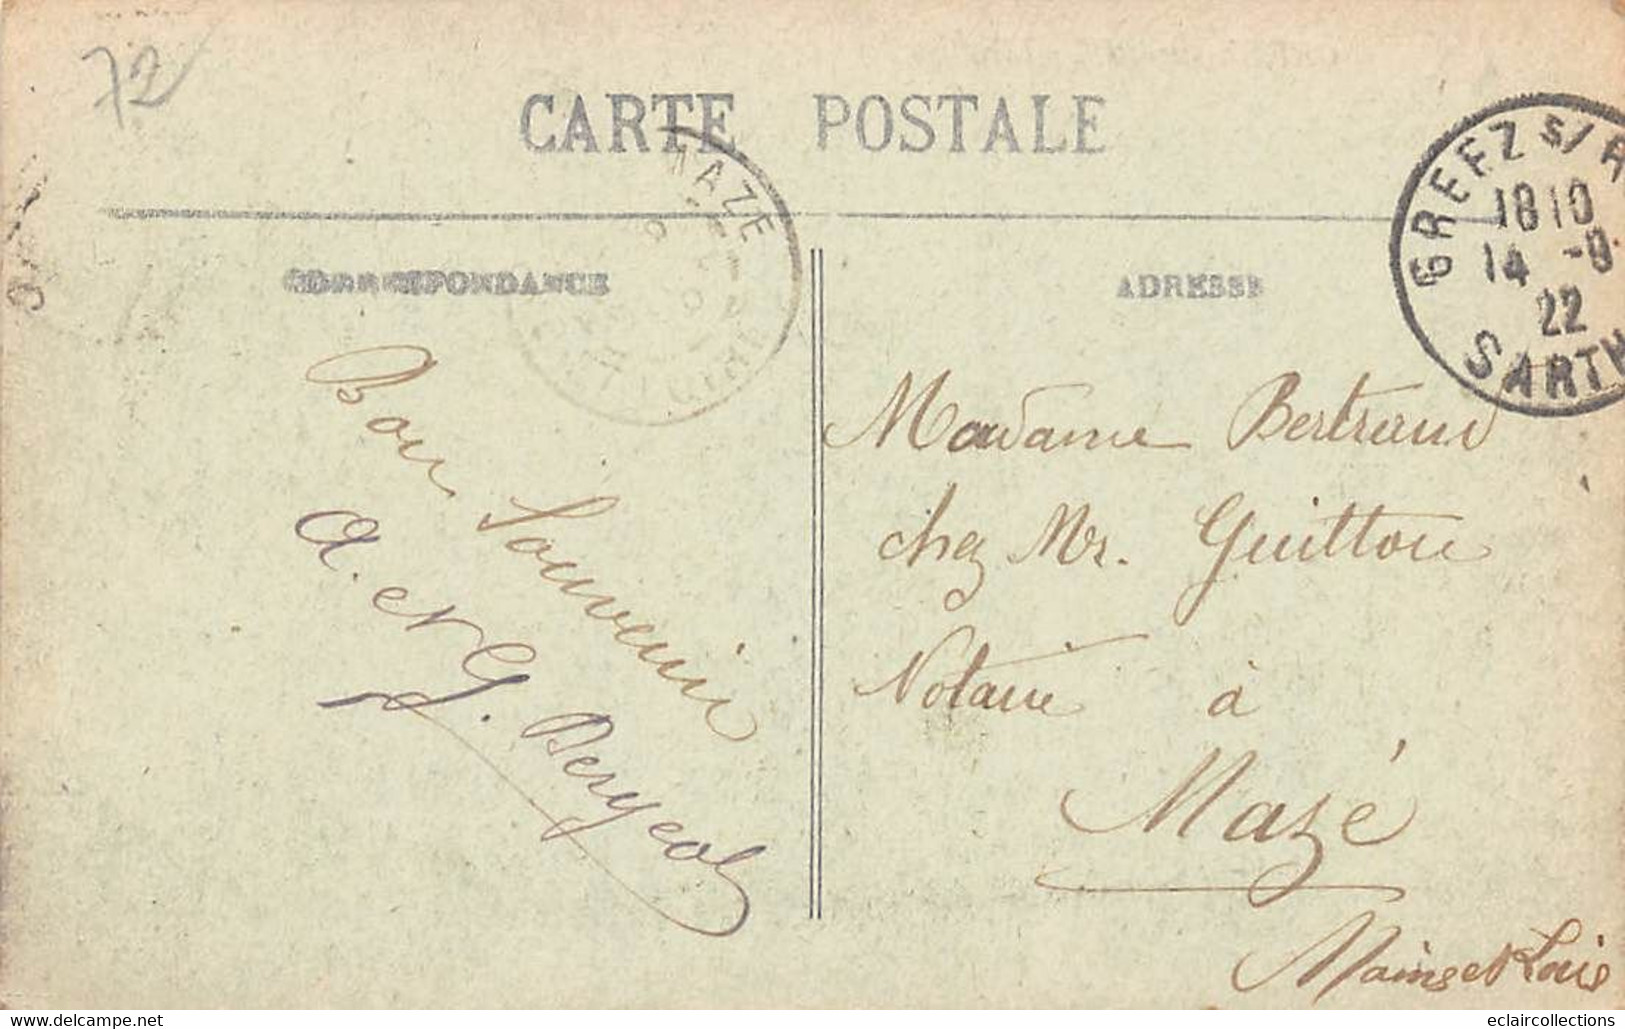 72
CARTE POSTALE
MAZE
GREEZ S/R
1810
14 -9
22
SARTH
CORRESPONDANCE
ADRESSE
Bon Souvenir
A. et G. Bergeol
Madame Bertrand
chez Mr. Guitton
Notaire à
Mazé
Maine et Loire
delcampe.net
eclaircollections